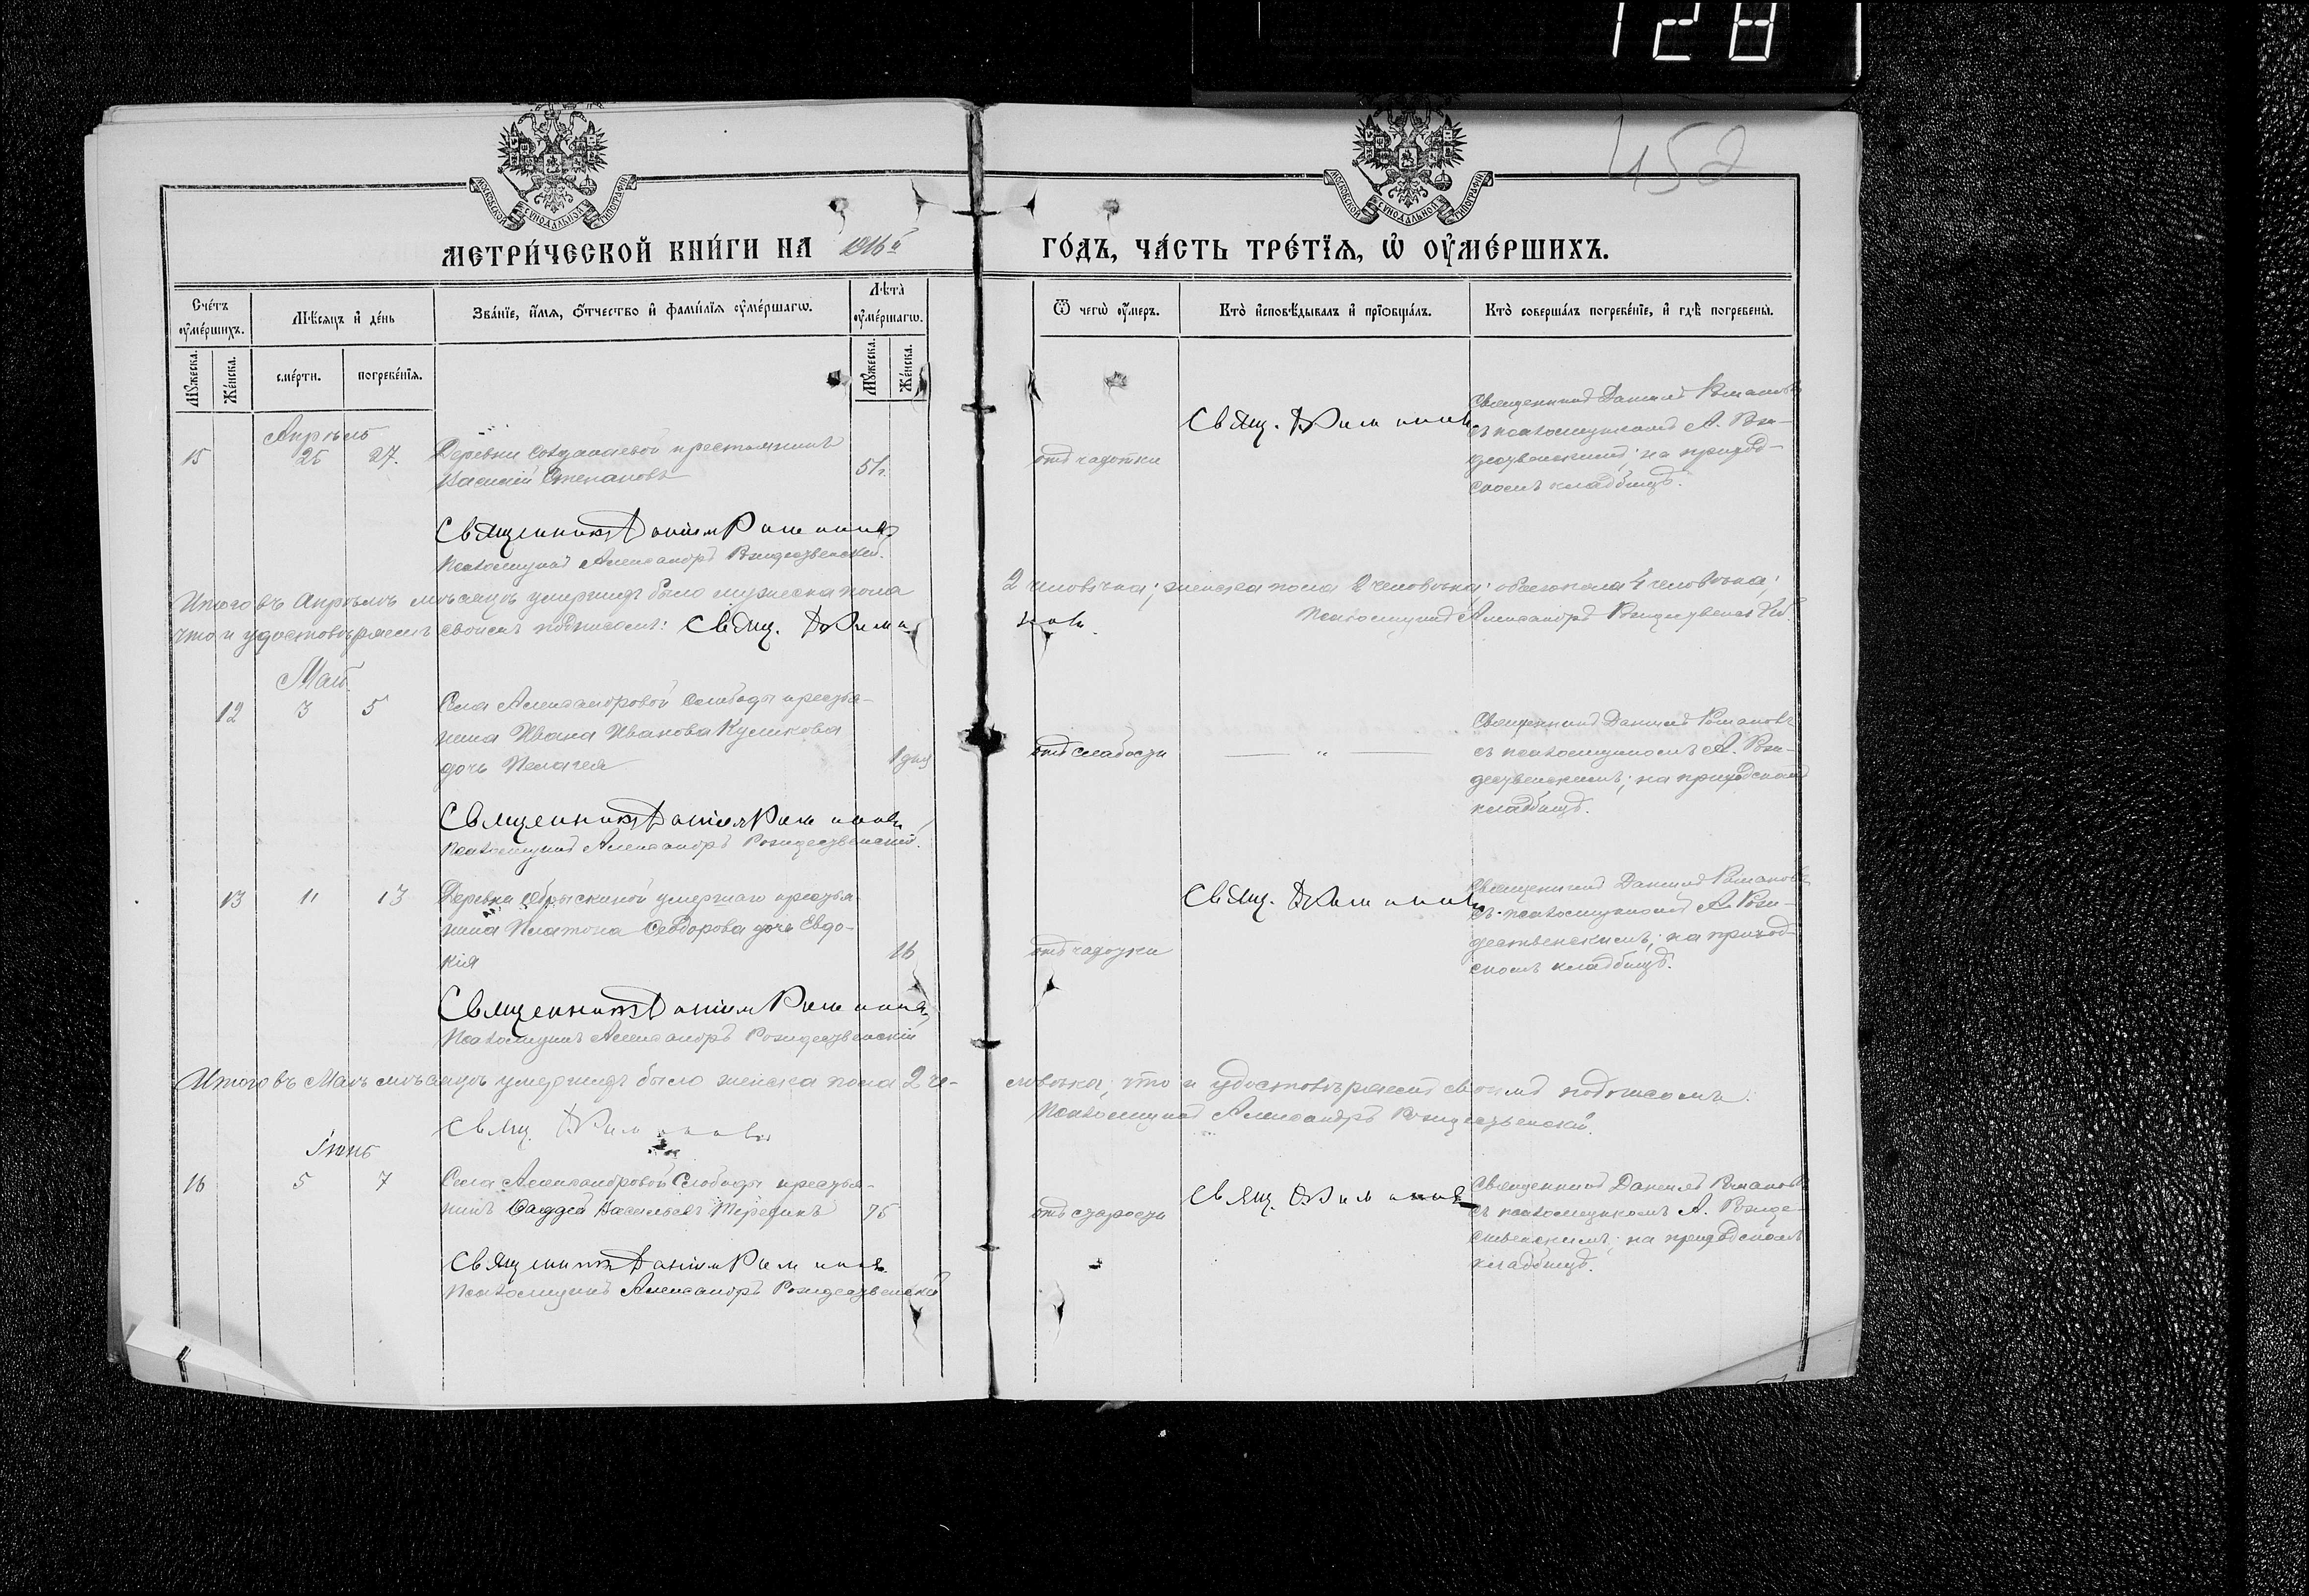 128
452
МОСКОВСКОЙ СѴНОДАЛЬНОЙ ТИПОГРАФІИ
МОСКОВСКОЙ СѴНОДАЛЬНОЙ ТИПОГРАФІИ
МЕТРИ́ЧЕСКОЙ КНИ́ГИ НА 1916й ГО́ДЪ, ЧА́СТЬ ТРЕ́ТЇѦ, Ѡ҆ ОУ҆МЕ́РШИХЪ.
Сче́тъ оу҆ме́ршихъ.
Мѣ́сяцъ и҆ де́нь
Зва́нїе, и҆́мѧ, ѻ҆́тчество и҆ фами́лїѧ оу҆ме́ршагѡ.
Лѣ̀та оу҆ме́ршагѡ.
Ѿ чегѡ̀ оу҆́меръ.
Кто̀ и҆сповѣ́дывалъ и҆ прїѡбща́лъ.
Кто̀ соверша́лъ погребе́нїе, и҆ гдѣ̀ погребены̀.
Мꙋ́жеска.
Же́нска.
сме́рти.
погребе́нїѧ.
Мꙋ́жеска.
Же́нска.
Апрѣль
15 25 27. Деревни крестьянинъ
Василій Степановъ 51г.
отъ чахотки
Свящ. Д Романовъ
Священникъ Даніилъ Романовъ
съ псаломщикомъ А. Рож-
дественскимъ; на приход-
скомъ кладбищѣ.
Священникъ Даніилъ Романовъ
Псаломщикъ Александръ Рождественскій.
Итого въ Апрѣлѣ мѣсяцѣ умершихъ было мужеска пола 2 человѣка; женска пола 2 человѣка; обоего пола 4 человѣка;
что и удостовѣряемъ своимъ подписомъ: Свящ. Д Романовъ. Псаломщикъ Александръ Рождественскій.
Май.
12 3 5 Села Александровой Слободы кресть-
янина Ивана Иванова Куликова
дочь Пелагея 1 дня
отъ слабости
— „ —
Священникъ Даніилъ Романовъ
съ псаломщикомъ А. Рож-
дественскимъ; на приходскомъ
кладбищѣ.
Священникъ Даніилъ Романовъ
Псаломщикъ Александръ Рождественскій.
13 11 13 Деревни умершаго кресть-
янина Платона Ѳеодорова дочь Евдо-
кія 16
отъ чахотки
Свящ. Д Романовъ
Священникъ Даніилъ Романовъ
съ псаломщикомъ А. Рож-
дественскимъ; на приход-
скомъ кладбищѣ.
Священникъ Даніилъ Романовъ
Псаломщикъ Александръ Рождественскій
Итого въ Маѣ мѣсяцѣ умершихъ было женска пола 2 че- ловѣка; что и удостовѣряемъ своимъ подписомъ:
Свящ. Д Романовъ Псаломщикъ Александръ Рождественскій.
Іюнь
16 5 7 Села Александровой Слободы кресть-
янинъ Ѳаддей Васильевъ 75
отъ старости
Свящ. Д Романовъ
Священникъ Даніилъ Романовъ
съ псаломщикомъ А. Рожде-
ственскимъ; на приходскомъ
кладбищѣ.
Священникъ Даніилъ Романовъ
Псаломщикъ Александръ Рождественскій